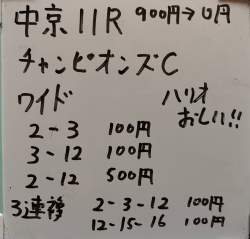 中京11R 900円→0円
チャンピオンズC
ワイド ハリオ
おしい!!
2-3 100円
3-12 100円
2-12 500円
3連複 2-3-12 100円
12-15-16 100円